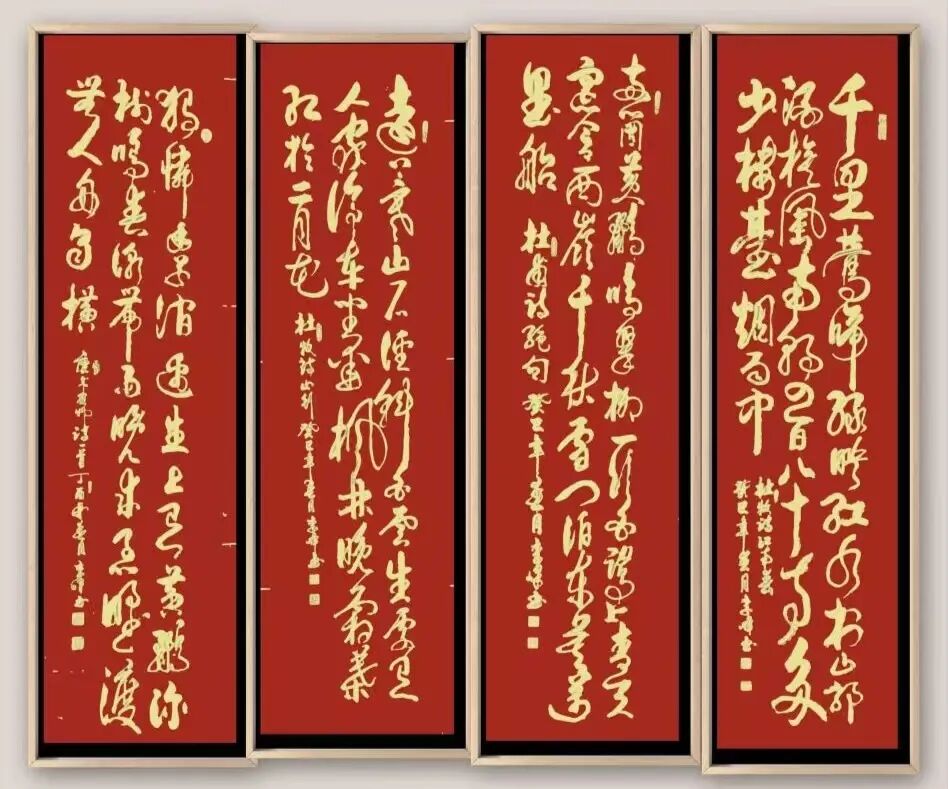 千里鶯啼綠映紅水村山郭
酒旗風南朝四百八十寺多
少樓臺烟雨中
杜牧詩江南春
癸巳年春月李
书
两個黄鸝鳴翠柳一行白鹭上青天
窓含西嶺千秋雪门泊东吴万
里船 杜甫詩绝句 癸巳年春月李 书
远上寒山石径斜白云生处有
人家停车坐爱枫林晚霜葉
红於二月花 杜牧詩山行 癸巳年春月李 书
独憐幽草涧边生上有黄鹂深
树鳴春潮带雨晚来急野渡
無人舟自横 诗一首丁酉年春月李 书